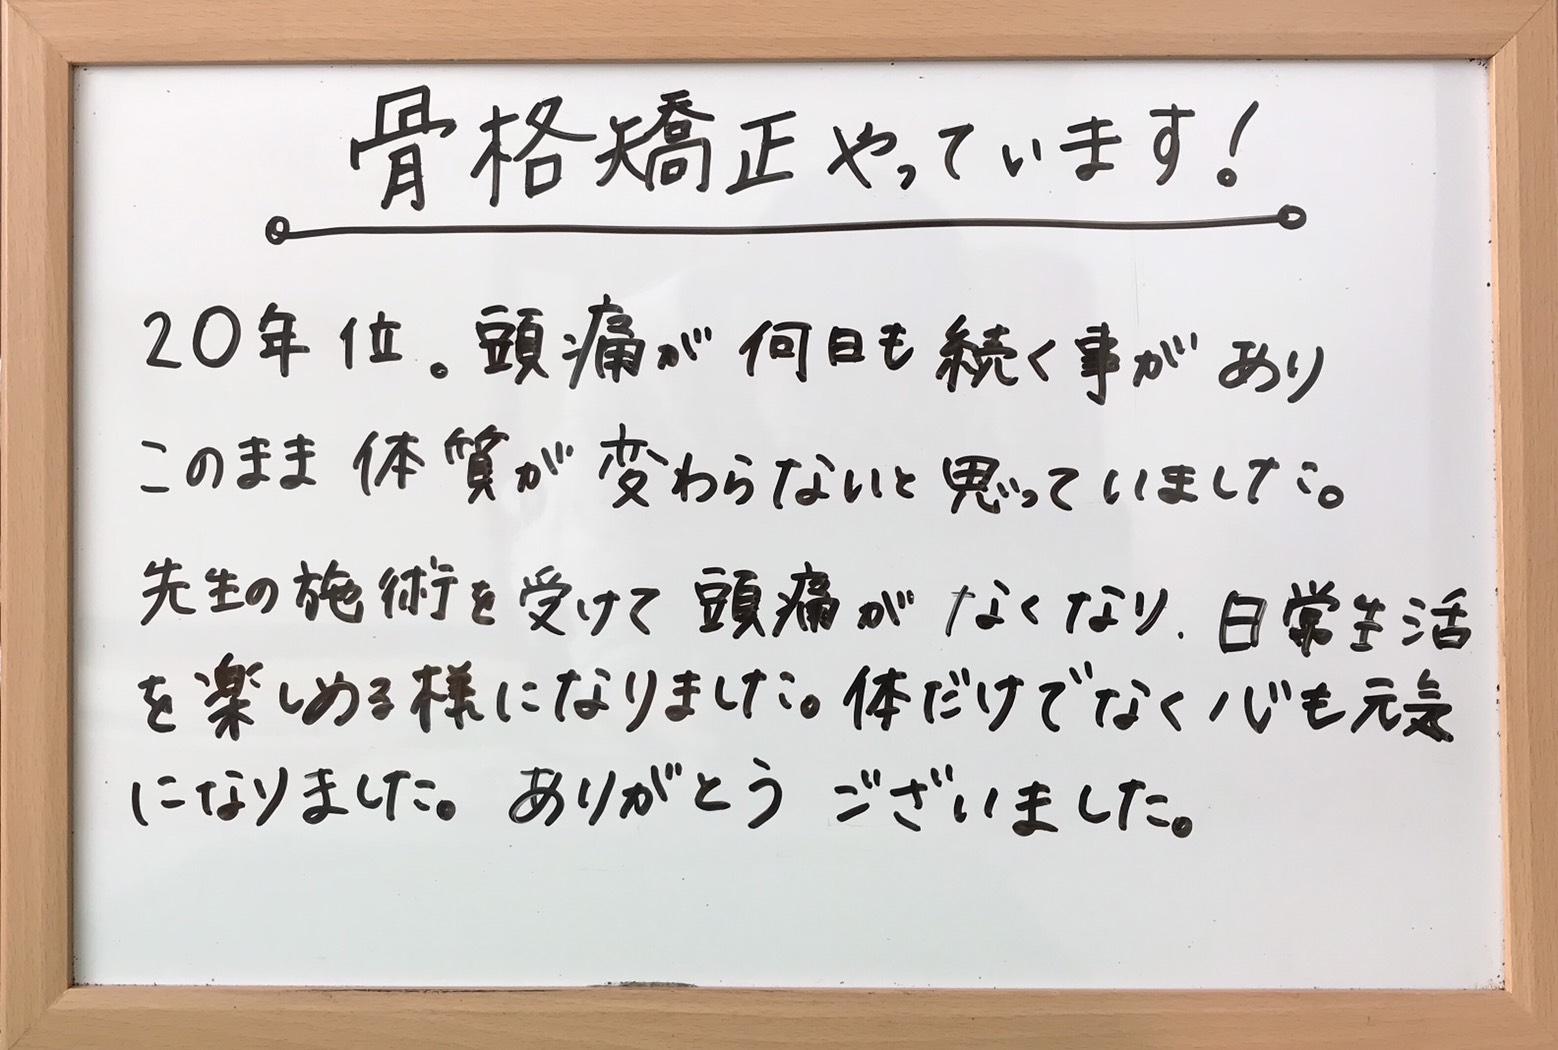 骨格矯正やっています!
20年位。頭痛が何日も続く事があり
このまま体質が変わらないと思っていました。
先生の施術を受けて頭痛がなくなり、日常生活
を楽しめる様になりました。体だけでなく心も元気
になりました。ありがとうございました。